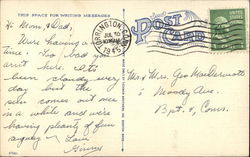 THIS SPACE FOR WRITING MESSAGES
Hi Mom & Dad,
We're having a
time. Too bad you
arn't here. It's
been cloudy every
day but the
sun comes out once
in a while and we're
having plenty of fun
anyway - Love
Ginny
TORRINGTON
JUL 10
1945
POST CARD
Mr & Mrs. Geo MacDermott
Moody Ave.
Bpt. 4, Conn.